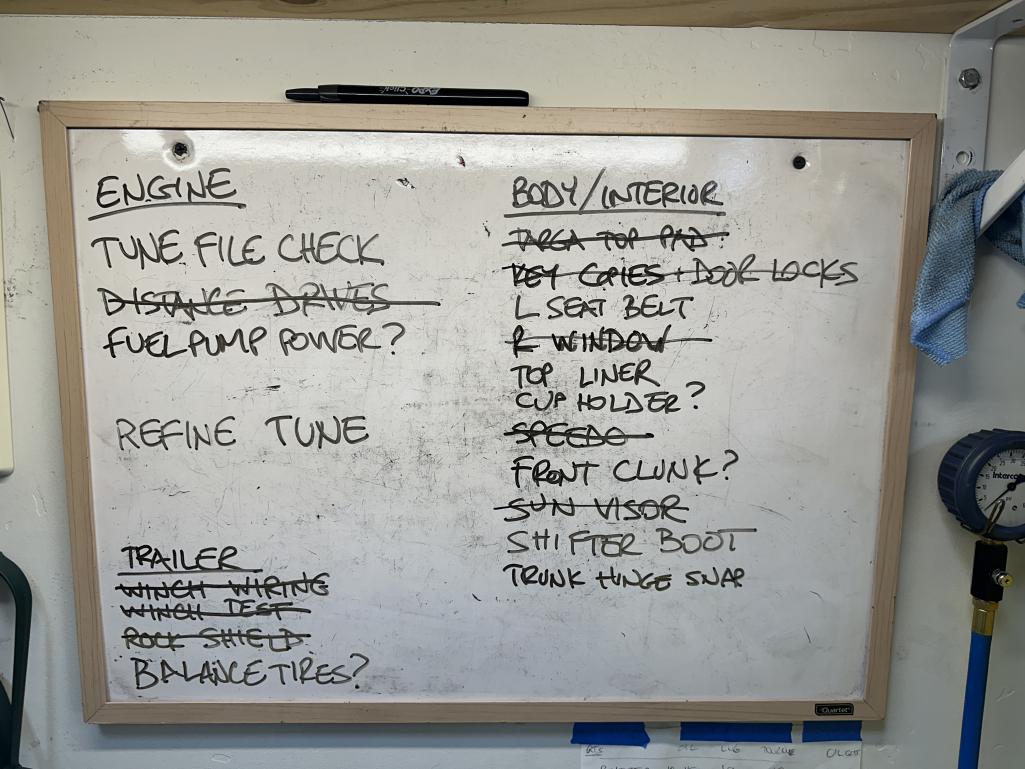 ENGINE
TUNE FILE CHECK
DISTANCE DRIVES
FUEL PUMP POWER?
REFINE TUNE
TRAILER
WINCH WIRING
WINCH TEST
ROCK SHIELD
BALANCE TIRES?
BODY/INTERIOR
TARGA TOP PAD
KEY COPIES + DOOR LOCKS
L SEAT BELT
R WINDOW
TOP LINER
CUP HOLDER?
SPEEDO
FRONT CLUNK?
SUN VISOR
SHIFTER BOOT
TRUNK HINGE SNAP
Quartet